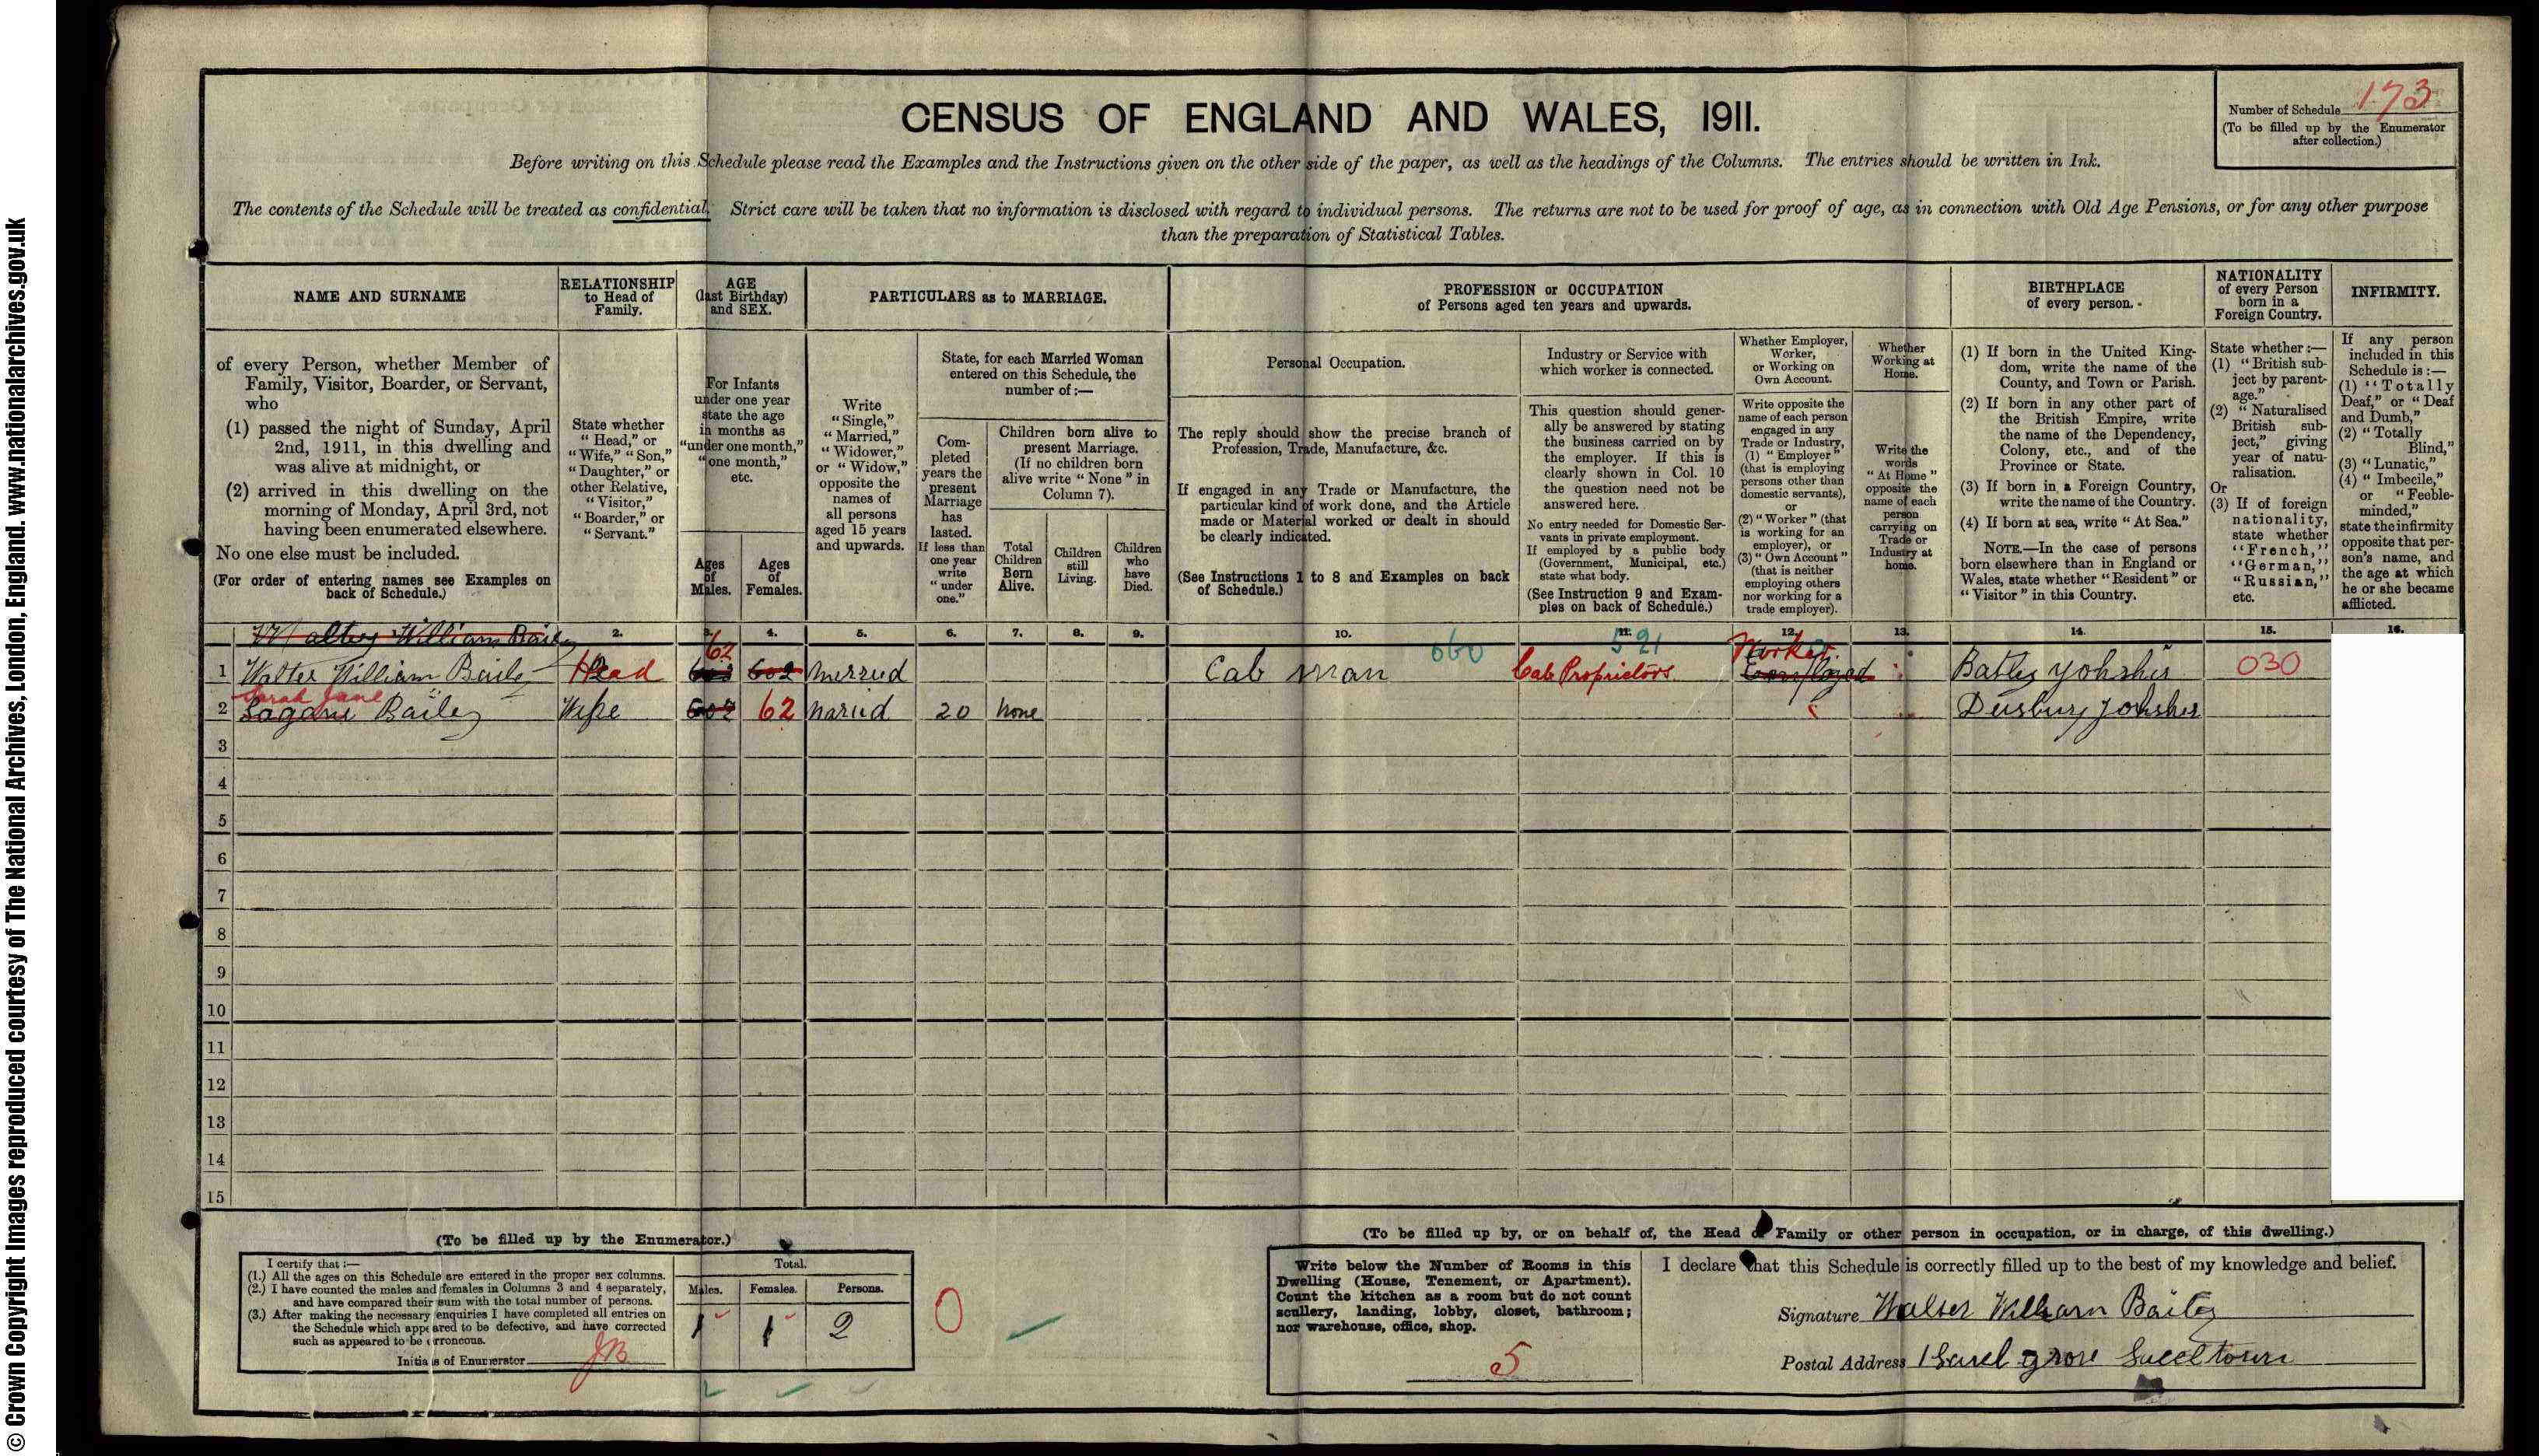 © Crown Copyright Images reproduced courtesy of The National Archives, London, England. www.nationalarchives.gov.uk
CENSUS OF ENGLAND AND WALES, 1911.
Number of Schedule 173
(To be filled up by the Enumerator after collection.)
Before writing on this Schedule please read the Examples and the Instructions given on the other side of the paper, as well as the headings of the Columns. The entries should be written in Ink.
The contents of the Schedule will be treated as confidential. Strict care will be taken that no information is disclosed with regard to individual persons. The returns are not to be used for proof of age, as in connection with Old Age Pensions, or for any other purpose
than the preparation of Statistical Tables.
NAME AND SURNAME
of every Person, whether Member of
Family, Visitor, Boarder, or Servant,
who
(1) passed the night of Sunday, April
2nd, 1911, in this dwelling and
was alive at midnight, or
(2) arrived in this dwelling on the
morning of Monday, April 3rd, not
having been enumerated elsewhere.
No one else must be included.
(For order of entering names see Examples on
back of Schedule.)
RELATIONSHIP
to Head of
Family.
State whether
"Head," or
"Wife," "Son,"
"Daughter," or
other Relative,
"Visitor,"
"Boarder," or
"Servant."
AGE
(last Birthday)
and SEX.
For Infants
under one year
state the age
in months as
"under one month,"
"one month,"
etc.
Ages
of
Males.
Ages
of
Females.
PARTICULARS as to MARRIAGE.
Write
"Single,"
"Married,"
"Widower,"
or "Widow,"
opposite the
names of
all persons
aged 15 years
and upwards.
State, for each Married Woman
entered on this Schedule, the
number of:—
Completed
years the
present
Marriage
has
lasted.
If less than
one year
write
"under
one."
Children born alive to
present Marriage.
(If no children born
alive write "None" in
Column 7).
Total
Children
Born
Alive.
Children
still
Living.
Children
who
have
Died.
PROFESSION or OCCUPATION
of Persons aged ten years and upwards.
Personal Occupation.
The reply should show the precise branch of
Profession, Trade, Manufacture, &c.
If engaged in any Trade or Manufacture, the
particular kind of work done, and the Article
made or Material worked or dealt in should
be clearly indicated.
(See Instructions 1 to 8 and Examples on back
of Schedule.)
Industry or Service with
which worker is connected.
This question should gener-
ally be answered by stating
the business carried on by
the employer. If this is
clearly shown in Col. 10
the question need not be
answered here.
No entry needed for Domestic Ser-
vants in private employment.
If employed by a public body
(Government, Municipal, etc.)
state what body.
(See Instruction 9 and Exam-
ples on back of Schedule.)
Whether Employer,
Worker,
or Working on
Own Account.
Write opposite the
name of each person
engaged in any
Trade or Industry,
(1) "Employer"
(that is employing
persons other than
domestic servants),
or
(2) "Worker" (that
is working for an
employer), or
(3) "Own Account"
(that is neither
employing others
nor working for a
trade employer).
Whether
Working at
Home.
Write the
words
"At Home"
opposite the
name of each
person
carrying on
Trade or
Industry at
home.
BIRTHPLACE
of every person.
(1) If born in the United King-
dom, write the name of the
County, and Town or Parish.
(2) If born in any other part of
the British Empire, write
the name of the Dependency,
Colony, etc., and of the
Province or State.
(3) If born in a Foreign Country,
write the name of the Country.
(4) If born at sea, write "At Sea."
NOTE.—In the case of persons
born elsewhere than in England or
Wales, state whether "Resident" or
"Visitor" in this Country.
NATIONALITY
of every Person
born in a
Foreign Country.
State whether:—
(1) "British sub-
ject by parent-
age."
(2) "Naturalised
British sub-
ject," giving
year of natu-
ralisation.
Or
(3) If of foreign
nationality,
state whether
"French,"
"German,"
"Russian,"
etc.
INFIRMITY.
If any person
included in this
Schedule is:—
(1) "Totally
Deaf," or "Deaf
and Dumb,"
(2) "Totally
Blind,"
(3) "Lunatic,"
(4) "Imbecile,"
or "Feeble-
minded,"
state the infirmity
opposite that per-
son's name, and
the age at which
he or she became
afflicted.
Walter William Baily 2. 3. 4. 5. 6. 7. 8. 9. 10. 11. 12. 13. 14. 15. 16.
62 660 521 Worker
1 Walter William Baile Head 602 merried Cab man Cab Proprietors Employed Batley Yohshir 030
Sarah Jane
2 Bailey Wife 62 Maried 20 None Deusbury Yohsher
3
4
5
6
7
8
9
10
11
12
13
14
15
(To be filled up by the Enumerator.)
I certify that:—
(1.) All the ages on this Schedule are entered in the proper sex columns.
(2.) I have counted the males and females in Columns 3 and 4 separately,
and have compared their sum with the total number of persons.
(3.) After making the necessary enquiries I have completed all entries on
the Schedule which appeared to be defective, and have corrected
such as appeared to be erroneous.
Initials of Enumerator JB
Total.
Males. Females. Persons.
1 1 2
0
(To be filled up by, or on behalf of, the Head of Family or other person in occupation, or in charge, of this dwelling.)
Write below the Number of Rooms in this
Dwelling (House, Tenement, or Apartment).
Count the kitchen as a room but do not count
scullery, landing, lobby, closet, bathroom;
nor warehouse, office, shop.
5
I declare that this Schedule is correctly filled up to the best of my knowledge and belief.
Signature Walter William Bailey
Postal Address 1 grove